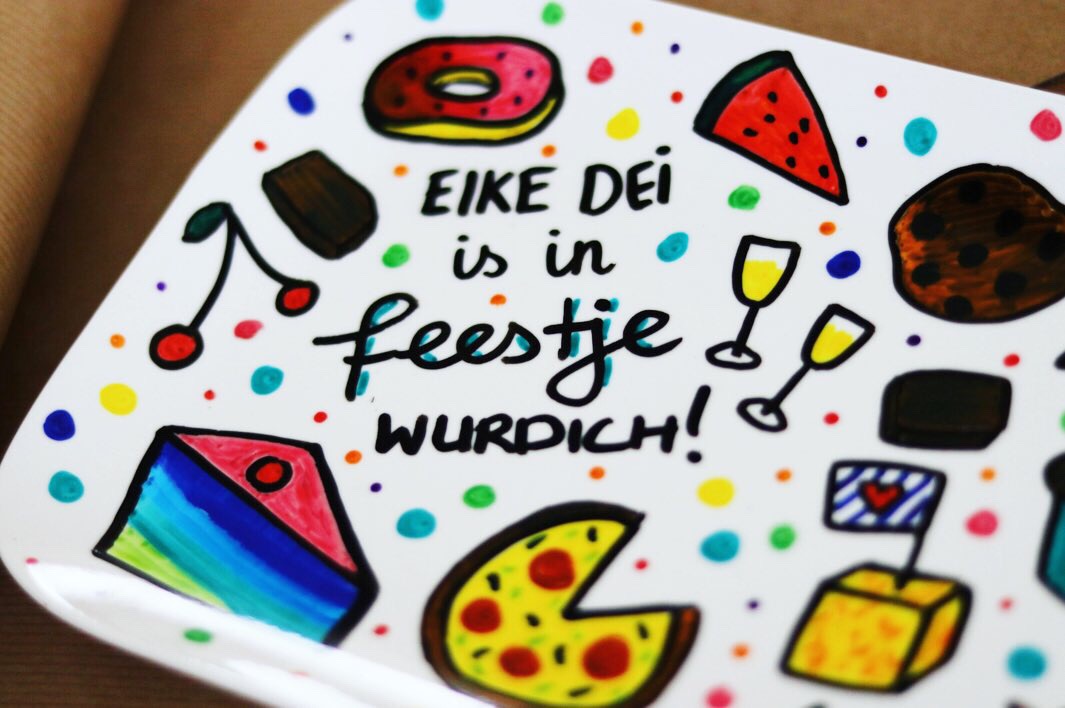 EIKE DEI
is in
feestje
WURDICH!